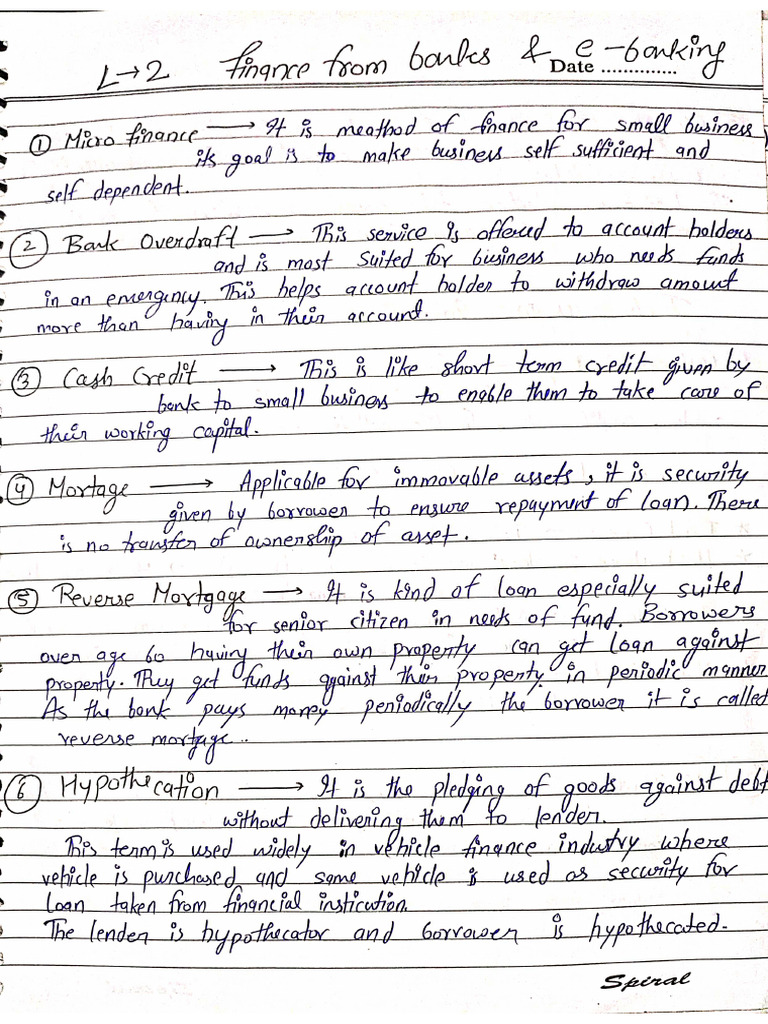 L→2 Finance from banks & e-banking
Date ..............
① Micro finance → It is meathod of finance for small business
its goal is to make business self sufficient and
self dependent.
② Bank Overdraft → This service is offered to account holders
and is most suited for business who needs funds
in an emergency. This helps account holder to withdraw amount
more than having in their account.
③ Cash Credit → This is like short term credit given by
bank to small business to enable them to take care of
their working capital.
④ Mortage → Applicable for immovable assets, it is security
given by borrower to ensure repayment of loan. There
is no transfer of ownership of asset.
⑤ Reverse Mortgage → It is kind of loan especially suited
for senior citizen in needs of fund. Borrowers
over age 60 having their own property can get loan against
property. They get funds against their property in periodic manner
As the bank pays money periodically the borrower it is called
reverse mortgage.
⑥ Hypothecation → It is the pledging of goods against debt
without delivering them to lender.
This term is used widely in vehicle finance industry where
vehicle is purchased and same vehicle is used as security for
loan taken from financial instication.
The lender is hypothecator and borrower is hypothecated.
Spiral